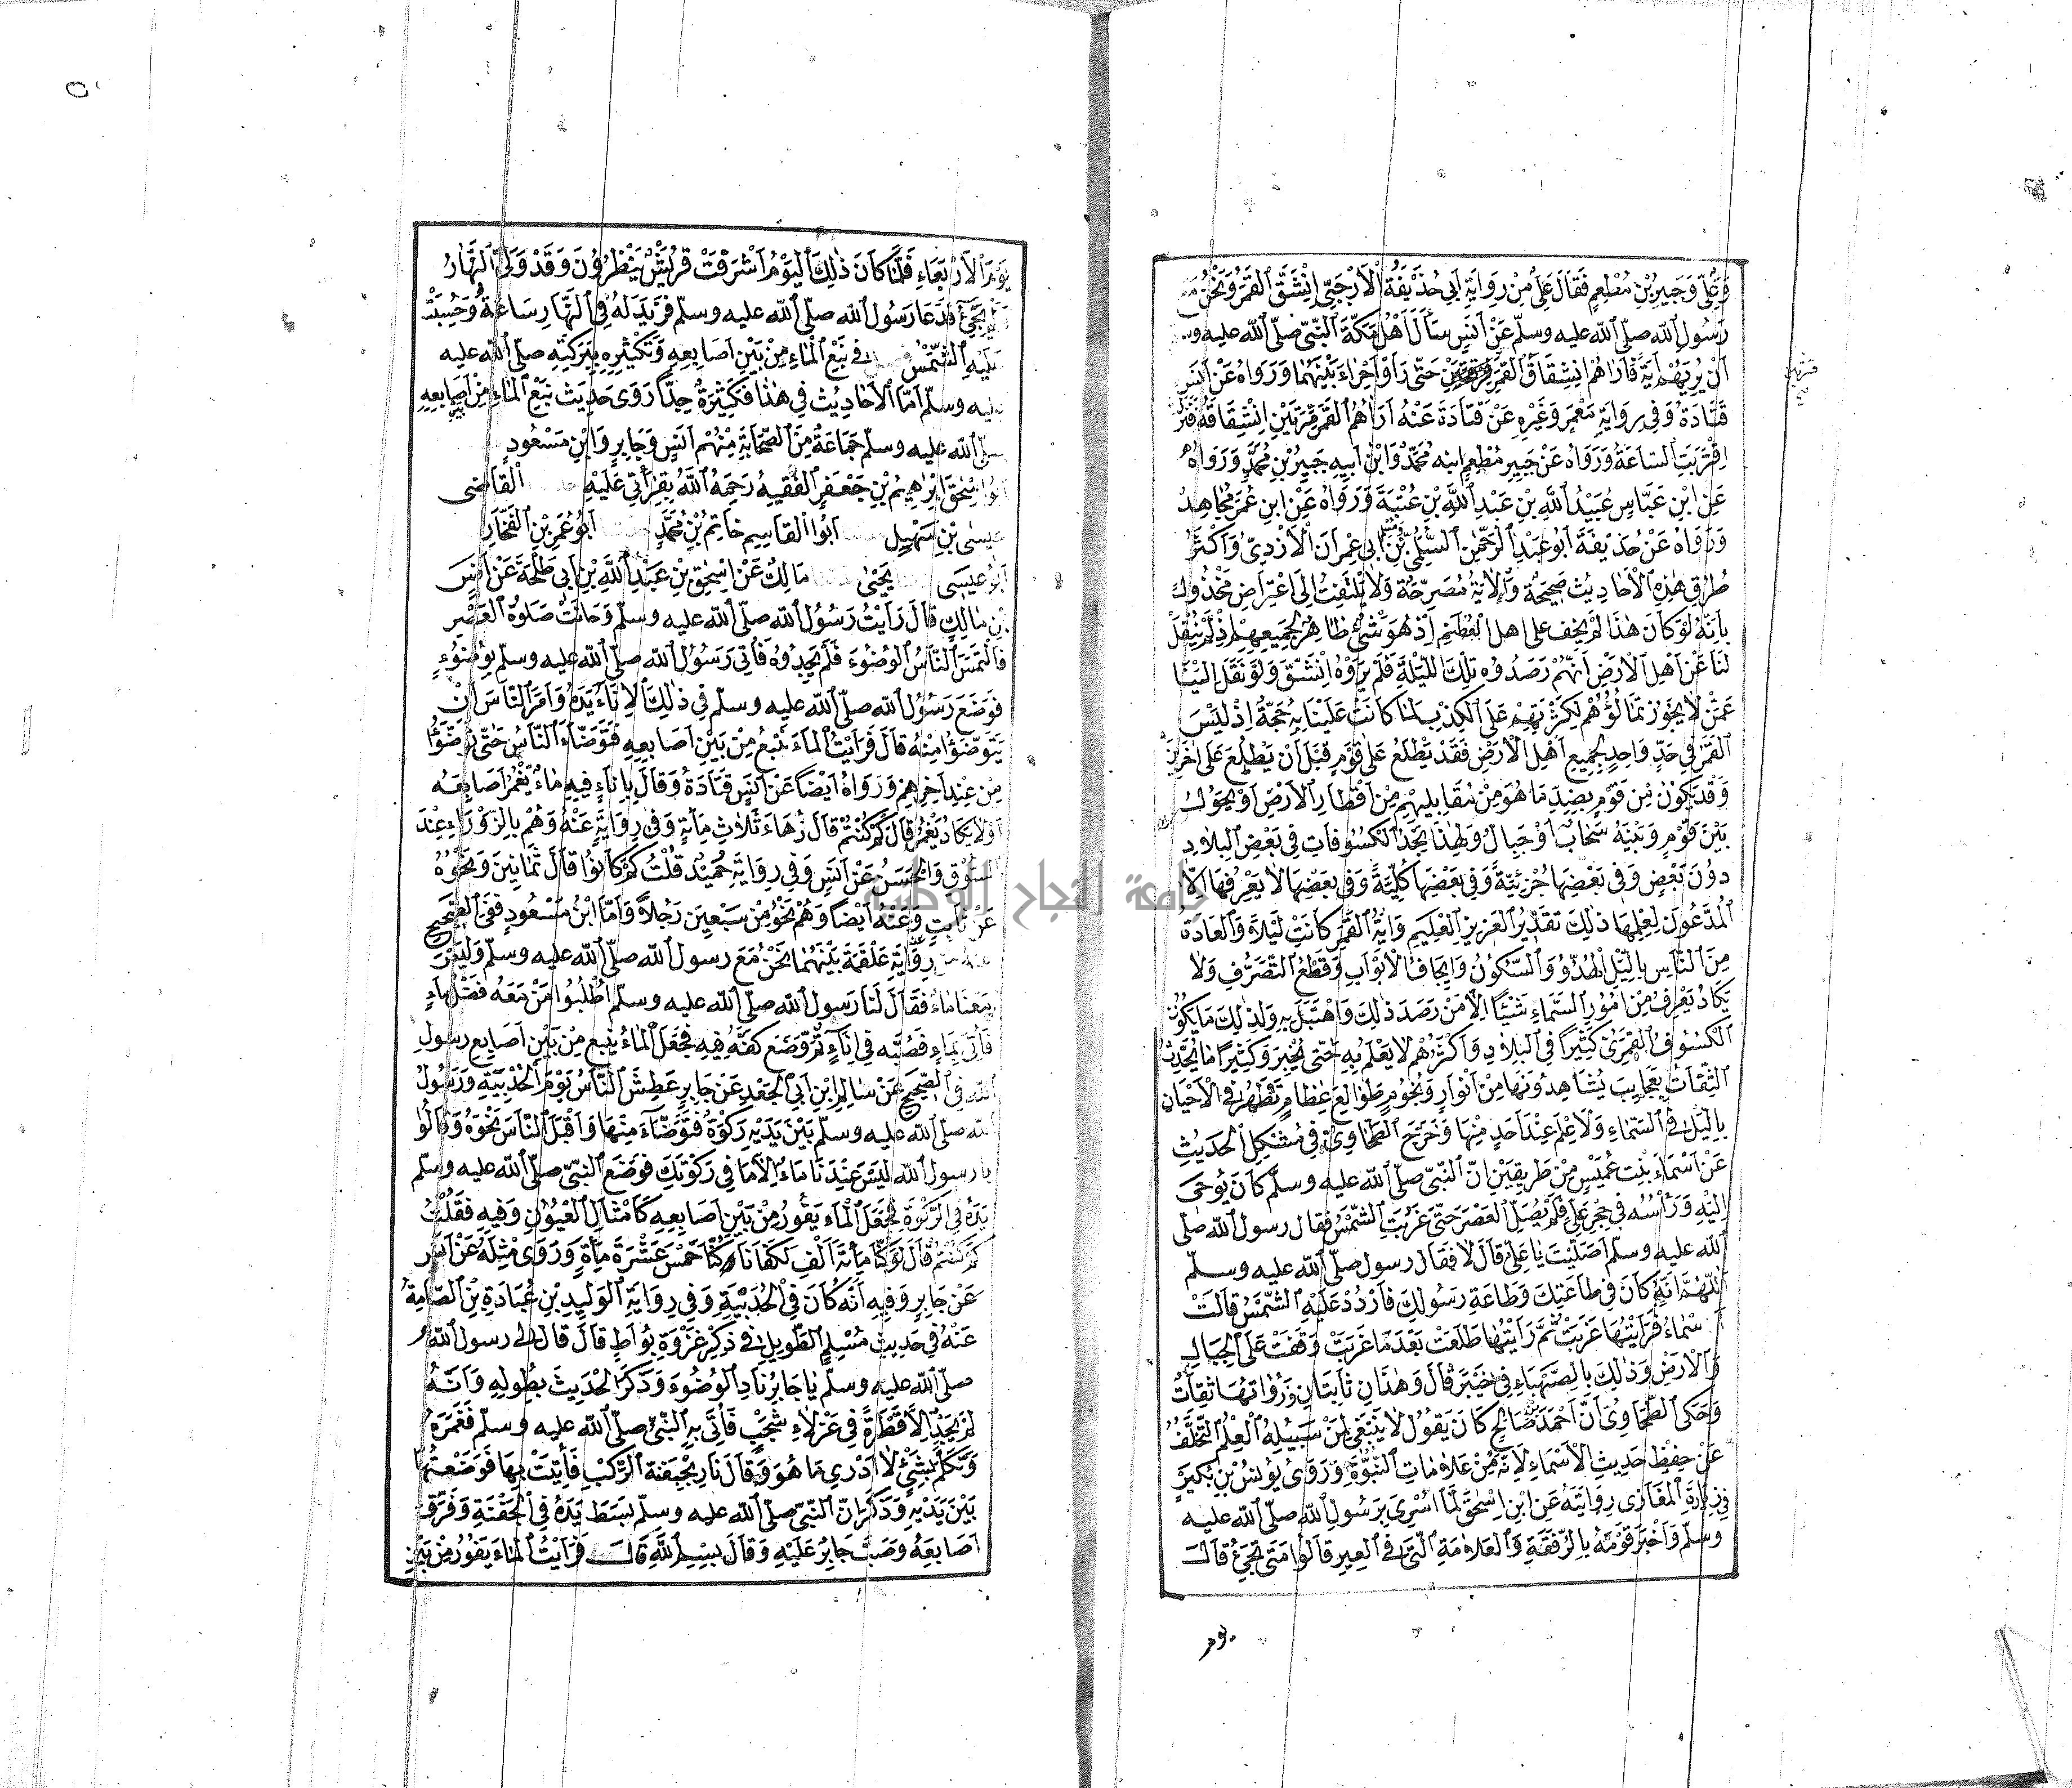 وَعَلِيٌّ وَجُبَيْرُ بْنُ مُطْعِمٍ فَقَالَ عَلِيٌّ مِنْ رِوَايَةِ أَبِي حُذَيْفَةَ الْأَرْحَبِيِّ انْشَقَّ الْقَمَرُ وَنَحْنُ مَعَ
رَسُولِ اللّٰه صلّى اللّٰه عليه وسلّم عَنْ أَنَسٍ سَأَلَ أَهْلُ مَكَّةَ النَّبِيَّ صلّى اللّٰه عليه وسلم
أَنْ يُرِيَهُمْ آيَةً فَأَرَاهُمُ انْشِقَاقَ الْقَمَرِ حَتَّى رَأَوْا حِرَاءَ بَيْنَهُمَا وَرَوَاهُ عَنْ أَنَسٍ
فرقتين
قَتَادَةُ وَفِي رِوَايَةِ مَعْمَرٍ وَغَيْرِهِ عَنْ قَتَادَةَ عَنْهُ أَرَاهُمُ الْقَمَرَ مَرَّتَيْنِ انْشِقَاقَهُ فَنَزَلَتْ
اقْتَرَبَتِ السَّاعَةُ وَرَوَاهُ عَنْ جُبَيْرِ مُطْعِمٍ ابنه مُحَمَّدٌ وَابْنُ ابِيهِ جُبَيْرُ بْنُ مُحَمَّدٍ وَرَوَاهُ
عَنِ ابْنِ عَبَّاسٍ عُبَيْدُ اللَّهِ بْنِ عَبْدِ اللَّهِ بْنِ عُتْبَةَ وَرَوَاهُ عَنِ ابْنِ عُمَرَ مُجَاهِدٌ
وَرَوَاهُ عَنْ حُذَيْفَةَ أَبُو عَبْدِ الرَّحْمٰنِ السُّلَمِيُّ بْنُ أَبِي عِمْرَانَ الْأَزْدِيُّ وَأَكْثَرُ
طُرُقِ هٰذِهِ الْأَحَادِيثِ صَحِيحَةٌ وَالْآيَةُ مُصَرِّحَةٌ وَلَا يُلْتَفَتُ إِلَى اعْتِرَاضِ مَخْذُولٍ
بِأَنَّهُ لَوْ كَانَ هٰذَا لَمْ يَخْفَ على اهل الْأَرْضِ إِذْ هُوَ شَيْءٌ ظَاهِرٌ لِجَمِيعِهِمْ إِذْ لَمْ يُنْقَلْ
لَنَا عَنْ أَهْلِ الْأَرْضِ أَنَّهُمْ رَصَدُوهُ تِلْكَ اللَّيْلَةَ فَلَمْ يَرَوْهُ انْشَقَّ وَلَوْ نُقِلَ إِلَيْنَا
عَمَّنْ لَا يَجُوزُ تَمَالُؤُهُمْ لِكَثْرَتِهِمْ عَلَى الْكَذِبِ لَمَا كَانَتْ عَلَيْنَا بِهِ حُجَّةٌ إِذْ لَيْسَ
الْقَمَرُ فِي حَدٍّ وَاحِدٍ لِجَمِيعِ أَهْلِ الْأَرْضِ فَقَدْ يَطْلُعُ عَلَى قَوْمٍ قَبْلَ أَنْ يَطْلُعَ عَلَى آخَرِينَ
وَقَدْ يَكُونُ مِنْ قَوْمٍ بِضِدِّ مَا هُوَ مِنْ مُقَابِلِيهِمْ مِنْ أَقْطَارِ الْأَرْضِ أَوْ يَحُولُ
بَيْنَ قَوْمٍ وَبَيْنَهُ سَحَابٌ أَوْ جِبَالٌ وَلِهٰذَا نَجِدُ الْكُسُوفَاتِ فِي بَعْضِ الْبِلَادِ
دُونَ بَعْضٍ وَفِي بَعْضِهَا جُزْئِيَّةً وَفِي بَعْضِهَا كُلِّيَّةً وَفِي بَعْضِهَا لَا يَعْرِفُهَا إِلَّا
الْمُدَّعُونَ لِعِلْمِهَا ذٰلِكَ تَقْدِيرُ الْعَزِيزِ الْعَلِيمِ وَآيَةُ الْقَمَرِ كَانَتْ لَيْلًا وَالْعَادَةُ
مِنَ النَّاسِ بِاللَّيْلِ الْهُدُوُّ وَالسُّكُونُ وَإِيجَافُ الْأَبْوَابِ وَقَطْعُ التَّصَرُّفِ وَلَا
يَكَادُ يَعْرِفُ مِنْ أُمُورِ السَّمَاءِ شَيْئًا إِلَّا مَنْ رَصَدَ ذٰلِكَ وَاهْتَبَلَ بِهِ وَلِذٰلِكَ مَا يَكُونُ
الْكُسُوفُ الْقَمَرِيُّ كَثِيرًا فِي الْبِلَادِ وَأَكْثَرُهُمْ لَا يَعْلَمُ بِهِ حَتَّى يُخْبَرَ وَكَثِيرًا مَا يُحَدِّثُ
الثِّقَاتُ بِعَجَايِبَ يُشَاهِدُونَهَا مِنْ أَنْوَارٍ وَنُجُومٍ طَوَالِعَ عِظَامٍ تَظْهَرُ فِي الْأَحْيَانِ
بِاللَّيْلِ فِي السَّمَاءِ وَلَا عِلْمَ عِنْدَ أَحَدٍ مِنْهَا وَخَرَّجَ الطَّحَاوِيُّ فِي مُشْكِلِ الْحَدِيثِ
عَنْ أَسْمَاءَ بِنْتِ عُمَيْسٍ مِنْ طَرِيقَيْنِ أَنَّ النَّبِيَّ صلّى اللّٰه عليه وسلّم كَانَ يُوحَى
إِلَيْهِ وَرَأْسُهُ فِي حِجْرِ عَلِيٍّ فَلَمْ يُصَلِّ الْعَصْرَ حَتَّى غَرَبَتِ الشَّمْسُ فقال رسول اللّٰه صلّى
اللّٰه عليه وسلّم أَصَلَّيْتَ يَا عَلِيُّ قَالَ لَا فَقَالَ رسول صلّى اللّٰه عليه وسلّم
اللّٰهُمَّ إِنَّهُ كَانَ فِي طَاعَتِكَ وَطَاعَةِ رَسُولِكَ فَارْدُدْ عَلَيْهِ الشَّمْسَ قَالَتْ
أَسْمَاءُ فَرَأَيْتُهَا غَرَبَتْ ثُمَّ رَأَيْتُهَا طَلَعَتْ بَعْدَ مَا غَرَبَتْ وَقَفَتْ عَلَى الْجِبَالِ
وَالْأَرْضِ وَذٰلِكَ بِالصَّهْبَاءِ فِي خَيْبَرَ قَالَ وَهٰذَانِ ثَابِتَانِ وَرُوَاتُهَا ثِقَاتٌ
وَحَكَى الطَّحَاوِيُّ أَنَّ أَحْمَدَ بْنَ صَالِحٍ كَانَ يَقُولُ لَا يَنْبَغِي لِمَنْ سَبِيلُهُ الْعِلْمُ التَّخَلُّفُ
عَنْ حِفْظِ حَدِيثِ الْأَسْمَاءِ لِأَنَّهُ مِنْ عَلَامَاتِ النُّبُوَّةِ وَرَوَى يُونُسُ بْنُ بُكَيْرٍ
فِي زِيَادَةِ الْمَغَازِي رِوَايَتَهُ عَنِ ابْنِ إِسْحٰقَ لَمَّا أُسْرِيَ بِرَسُولِ اللّٰه صلّى اللّٰه عليه
وسلّم وَأَخْبَرَ قَوْمَهُ بِالرُّفْقَةِ وَالْعَلَامَةِ الَّتِي فِي الْعِيرِ قَالُوا مَتَى تَجِيءُ قَالَ
يوم
يَوْمَ الْأَرْبَعَاءِ فَلَمَّا كَانَ ذٰلِكَ الْيَوْمُ أَشْرَفَتْ قُرَيْشٌ يَنْظُرُونَ وَقَدْ وَلَّى النَّهَارُ
وَلَمْ تَجِئْ فَدَعَا رَسُولُ اللّٰه صلّى اللّٰه عليه وسلّم فَزِيدَ لَهُ فِي النَّهَارِ سَاعَةٌ وَحُبِسَتْ
عَلَيْهِ الشَّمْسُ فِي نَبْعِ الْمَاءِ مِنْ بَيْنِ أَصَابِعِهِ وَتَكْثِيرِهِ بِبَرَكَتِهِ صلّى اللّٰه عليه
عليه وسلّم أَمَّا الْأَحَادِيثُ فِي هٰذَا فَكَثِيرَةٌ جِدًّا رَوَى حَدِيثَ نَبْعِ الْمَاءِ مِنْ بين أَصَابِعِهِ
صلّى اللّٰه عليه وسلّم جَمَاعَةٌ مِنَ الصَّحَابَةِ مِنْهُمْ أَنَسٌ وَجَابِرٌ وَابْنُ مَسْعُودٍ
أَبُو إِسْحٰقَ إِبْرٰهِيمُ بْنُ جَعْفَرٍ الْفَقِيهُ رَحِمَهُ اللَّهُ بِقِرَائَتِي عَلَيْهِ الْقَاضِي
عِيسَى بْنُ سَهْلٍ أَبُو الْقَاسِمِ حَاتِمُ بْنُ مُحَمَّدٍ أَبُو عُمَرَ بْنُ الْفَخَّارِ
أَبُو عِيسَى يَحْيَى مَالِكٌ عَنْ إِسْحٰقَ بْنِ عَبْدِ اللَّهِ بْنِ أَبِي طَلْحَةَ عَنْ أَنَسِ
بْنِ مَالِكٍ قَالَ رَأَيْتُ رَسُولَ اللّٰه صلّى اللّٰه عليه وسلّم وَحَانَتْ صَلٰوةُ الْعَصْرِ
فَالْتَمَسَ النَّاسُ الْوُضُوءَ فَلَمْ يَجِدُوهُ فَأُتِيَ رَسُولُ اللّٰه صلّى اللّٰه عليه وسلّم بِوَضُوءٍ
فَوَضَعَ رَسُولُ اللّٰه صلّى اللّٰه عليه وسلّم فِي ذٰلِكَ الْإِنَاءِ يَدَهُ وَأَمَرَ النَّاسَ أَنْ
يَتَوَضَّؤُا مِنْهُ قَالَ فَرَأَيْتُ الْمَاءَ يَنْبُعُ مِنْ بَيْنِ أَصَابِعِهِ فَتَوَضَّأَ النَّاسُ حَتَّى تَوَضَّؤُا
مِنْ عِنْدِ آخِرِهِمْ وَرَوَاهُ أَيْضًا عَنْ أَنَسٍ قَتَادَةُ وَقَالَ بِإِنَاءٍ فِيهِ مَاءٌ يَغْمُرُ أَصَابِعَهُ
أَوْ لَا يَكَادُ يَغْمُرُ قَالَ كَمْ كُنْتُمْ قَالَ زُهَاءَ ثَلَاثِ مِائَةٍ وَفِي رِوَايَةٍ عَنْهُ وَهُمْ بِالزَّوْرَاءِ عِنْدَ
السُّوقِ وَالْحَسَنُ عَنْ أَنَسٍ وَفِي رِوَايَةِ حُمَيْدٍ قُلْتُ كَمْ كَانُوا قَالَ ثَمَانِينَ وَنَحْوُهُ
عَنْ ثَابِتٍ وَعَنْهُ أَيْضًا وَهُمْ نَحْوٌ مِنْ سَبْعِينَ رَجُلًا وَأَمَّا ابْنُ مَسْعُودٍ فَفِي الصَّحِيحِ
رِوَايَةِ عَلْقَمَةَ بَيْنَمَا نَحْنُ مَعَ رسول اللّٰه صلّى اللّٰه عليه وسلّم وَلَيْسَ
مَعَنَا مَاءٌ فَقَالَ لَنَا رَسُولُ اللّٰه صلّى اللّٰه عليه وسلّم اُطْلُبُوا مَنْ مَعَهُ فَضْلُ مَاءٍ
فَأُتِيَ بِمَاءٍ فَصَبَّهُ فِي إِنَاءٍ ثُمَّ وَضَعَ كَفَّهُ فِيهِ فَجَعَلَ الْمَاءُ يَنْبُعُ مِنْ بَيْنِ أَصَابِعِ رسول
اللّٰه فِي الصَّحِيحِ عَنْ سَالِمِ ابْنِ أَبِي الْجَعْدِ عَنْ جَابِرٍ عَطِشَ النَّاسُ يَوْمَ الْحُدَيْبِيَةِ وَرَسُولُ
اللّٰه صلّى اللّٰه عليه وسلّم بَيْنَ يَدَيْهِ رَكْوَةٌ فَتَوَضَّأَ مِنْهَا وَأَقْبَلَ النَّاسُ نَحْوَهُ وَقَالُوا
يا رسول اللّٰه لَيْسَ عِنْدَنَا مَاءٌ إِلَّا مَا فِي رَكْوَتِكَ فَوَضَعَ النَّبِيُّ صلّى اللّٰه عليه وسلّم
يَدَهُ فِي الرَّكْوَةِ فَجَعَلَ الْمَاءُ يَفُورُ مِنْ بَيْنِ أَصَابِعِهِ كَأَمْثَالِ الْعُيُونِ وَفِيهِ فَقُلْتُ
كَمْ كُنْتُمْ قَالَ لَوْ كُنَّا مِائَةَ أَلْفٍ لَكَفَانَا كُنَّا خَمْسَ عَشْرَةَ مِائَةٍ وَرُوِيَ مِثْلُهُ عَنْ أَنَسٍ
عَنْ جَابِرٍ وَفِيهِ أَنَّهُ كَانَ فِي الْحُدَيْبِيَةِ وَفِي رِوَايَةِ الْوَلِيدِ بْنِ عُبَادَةَ بْنِ الصَّامِتِ
عَنْهُ فِي حَدِيثِ مُسْلِمٍ الطَّوِيلِ فِي ذِكْرِ غَزْوَةِ بُوَاطٍ قَالَ قَالَ لِي رسول اللّٰه
صلّى اللّٰه عليه وسلّم يَا جَابِرُ نَادِ الْوُضُوءَ وَذَكَرَ الْحَدِيثَ بِطُولِهِ وَأَنَّهُ
لَمْ يَجِدْ إِلَّا قَطْرَةً فِي عَزْلَاءِ شَجْبٍ فَأُتِيَ بِهِ النَّبِيُّ صلّى اللّٰه عليه وسلّم فَغَمَزَهُ
وَتَكَلَّمَ بِشَيْءٍ لَا أَدْرِي مَا هُوَ وَقَالَ نَادِ بِجَفْنَةِ الرَّكْبِ فَأَتَيْتُ بِهَا فَوَضَعْتُهَا
بَيْنَ يَدَيْهِ وَذَكَرَ أَنَّ النَّبِيَّ صلّى اللّٰه عليه وسلّم بَسَطَ يَدَهُ فِي الْجَفْنَةِ وَفَرَّقَ
أَصَابِعَهُ وَصَبَّ جَابِرٌ عَلَيْهِ وَقَالَ بِسْمِ اللَّهِ قَالَ فَرَأَيْتُ الْمَاءَ يَفُورُ مِنْ بَيْنِ
جامعة النجاح الوطنية